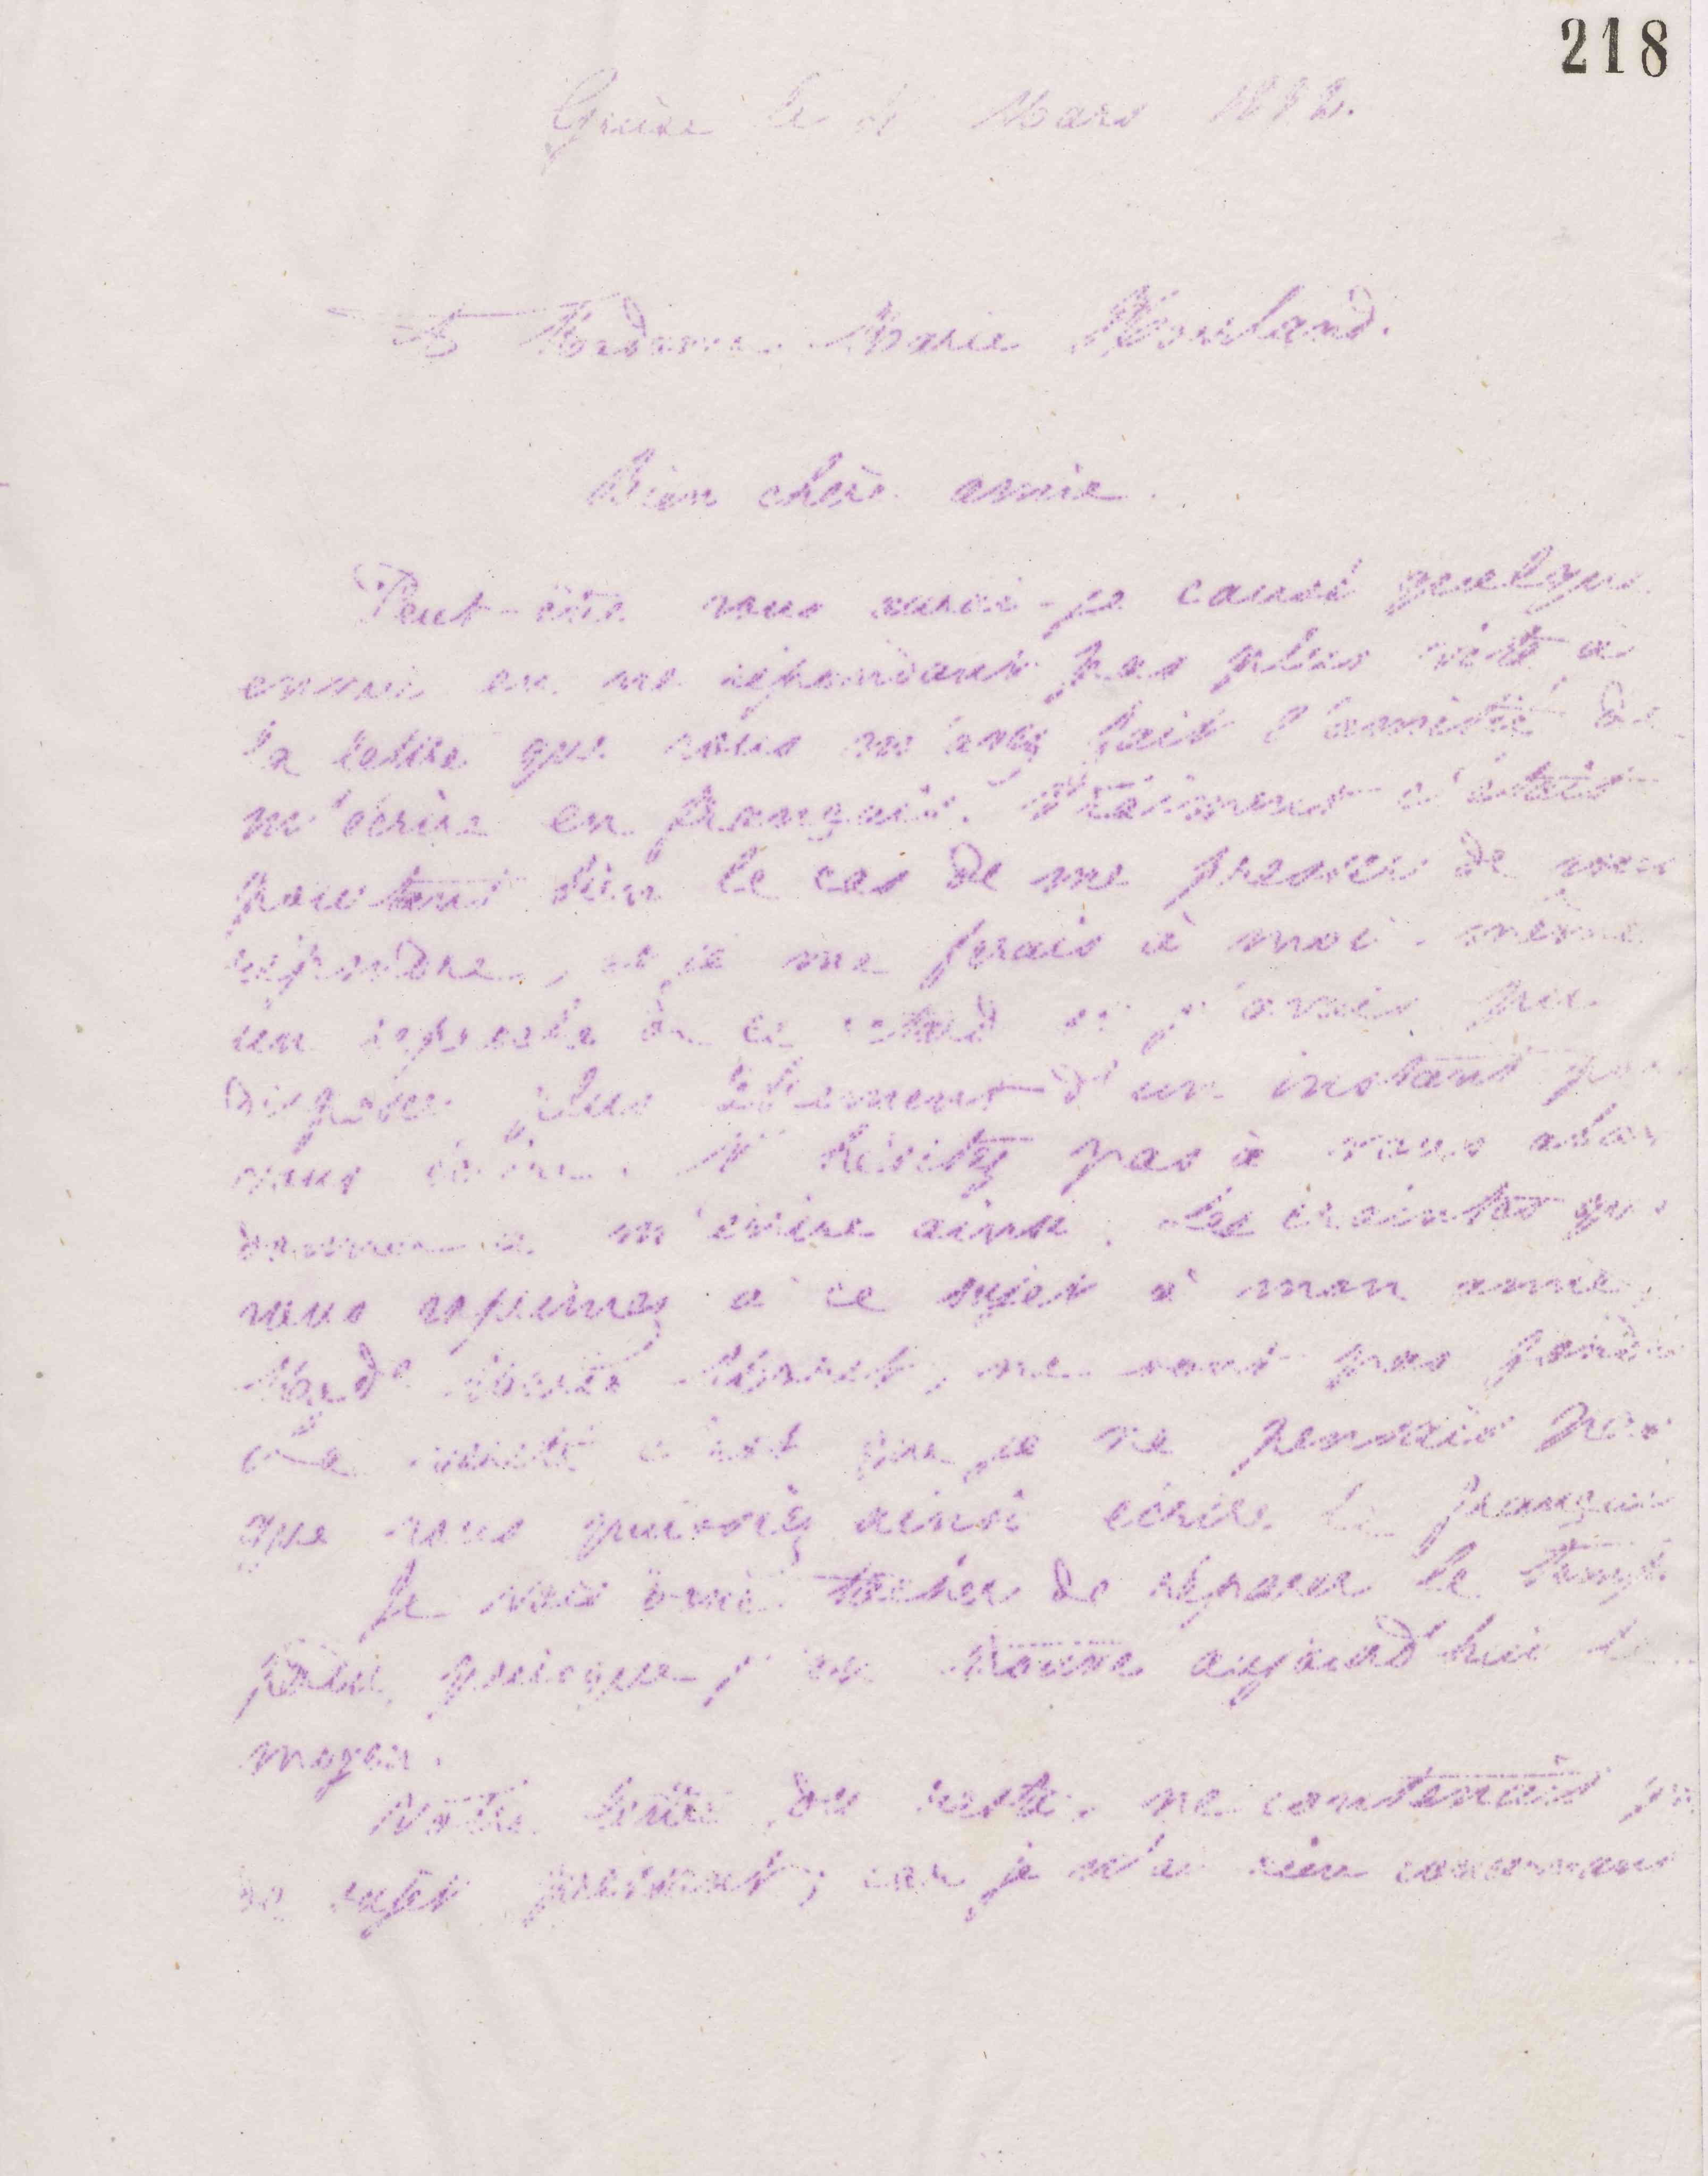 218
Guise le Mars
A Madame Marie Howland.
Bien chère amie.
Peut-être vous aurai-je causé quelque
ennui en ne répondant pas plus vite à
la lettre que vous m'avez fait l'amitié de
m'écrire en français. Vraiment c'était
pourtant bien le cas de me presser de vous
répondre, et je me ferais à moi-même
un reproche de ce retard si j'avais pu
disposer plus librement d'un instant pour
vous écrire. N'hésitez pas à vous aban
donner à m'écrire ainsi. Les craintes que
vous exprimez à ce sujet à mon amie,
Marie Moret, ne sont pas
La vérité c'est que je ne pensais pas
que vous puissiez ainsi écrire le français
Je vais donc tâcher de réparer le temps
perdu, puisque j'en trouve aujourd'hui le
moyen.
Votre lettre, du reste, ne contenait pas
de sujet pressant; car je n'ai rien concernant